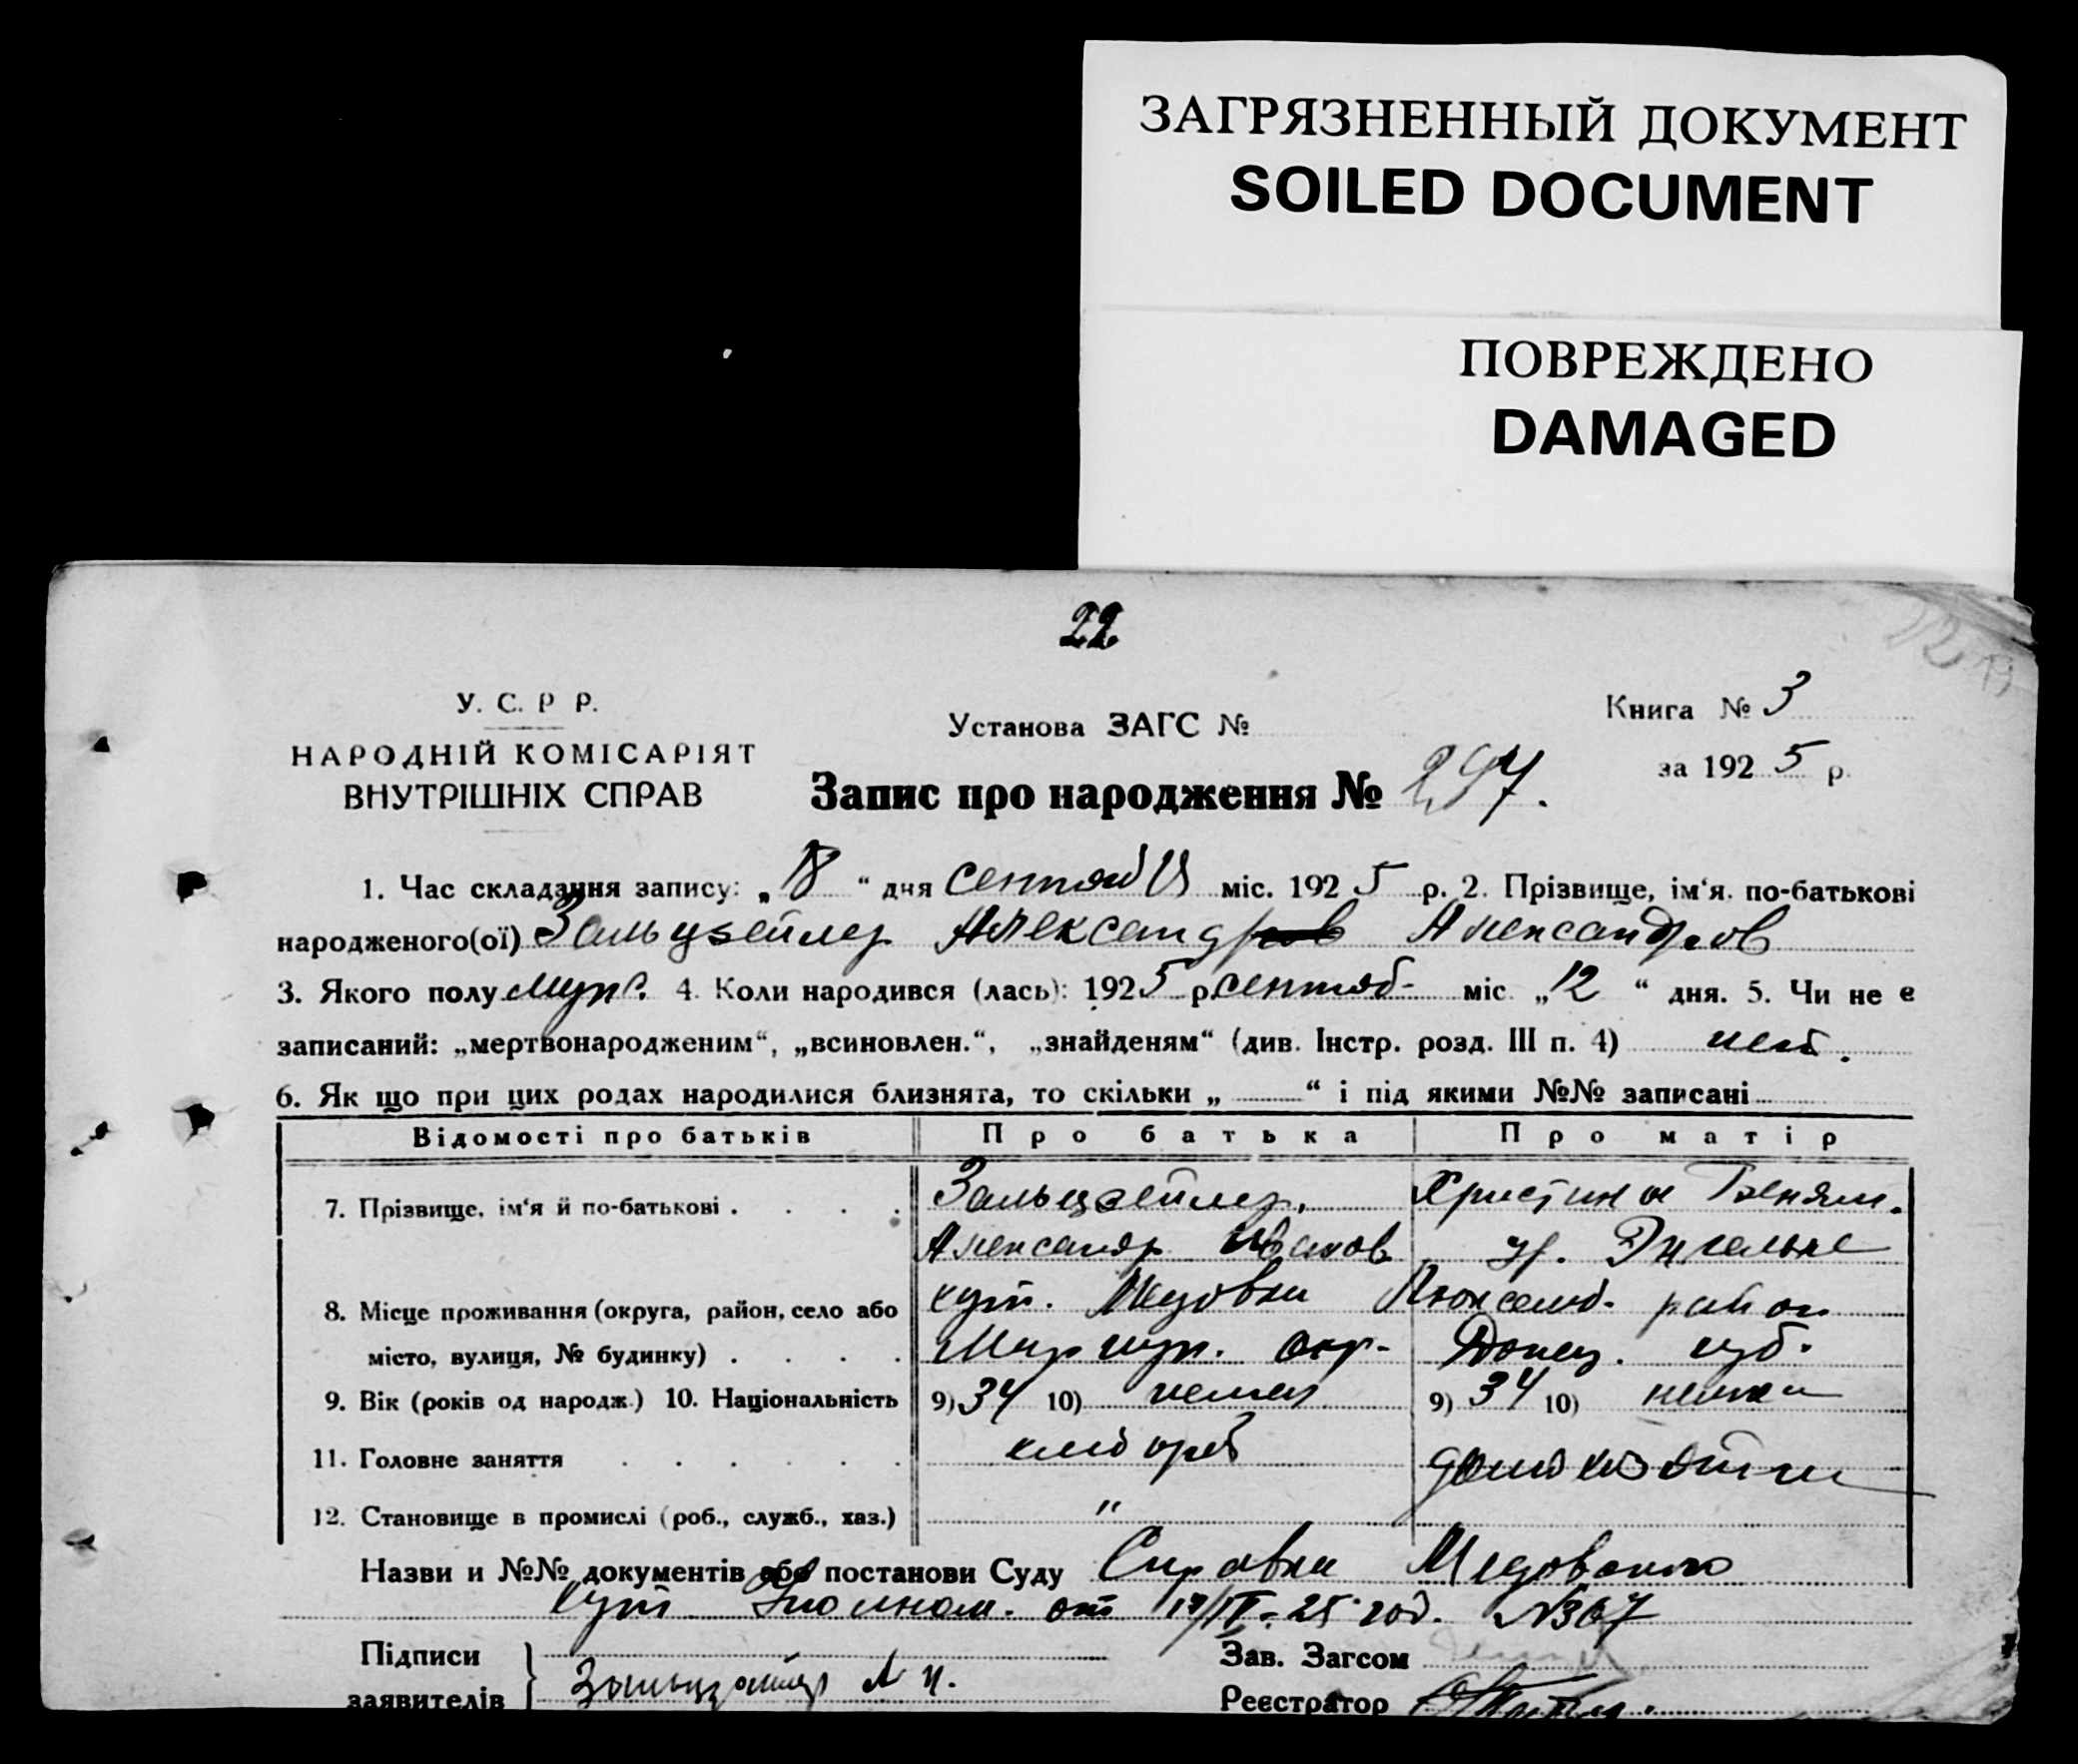 ЗАГРЯЗНЕННЫЙ ДОКУМЕНТ
SOILED DOCUMENT
ПОВРЕЖДЕНО
DAMAGED
22
У. С. Р Р.
НАРОДНІЙ КОМІСАРІЯТ
ВНУТРІШНІХ СПРАВ
Установа ЗАГС №
Книга № 3
за 1925 р.
Запис про народження № 297.
1. Час складання запису: „18“ дня сентяб міс. 1925 р. 2. Прізвище, ім‘я, по-батькові
народженого(ої) Зальцзейлер Александр Александров
3. Якого полу муж. 4. Коли народився (лась): 1925 р. сентяб- міс. „12“ дня. 5. Чи не є
записаний: „мертвонародженим“, „всиновлен.“, „знайденям“ (див. Інстр. розд. III п. 4) нет.
6. Як що при цих родах народилися близнята, то скільки „ “ і під якими №№ записані
Відомості про батьків Про батька Про матір
7. Прізвище, ім‘я й по-батькові . . . . Зальцзейлер, Христина Беням.
Александр Иванов ур. Энгельке
8. Місце проживання (округа, район, село або хут. Медовка Люксемб. район
місто, вулиця, № будинку) . . . . Мариуп. окр- Донец. губ.
9. Вік (років од народж.) 10. Національність 9) 34 10) немец 9) 34 10) немка
11. Головне заняття . . . . . . хлебороб домохоз
12. Становище в промислі (роб., служб., хаз.) "
Назви и №№ документів або постанови Суду Справка Медовского
хут от 17/IX-25 год. №367
Підписи
заявителів
Зав. Загсом
Реєстратор